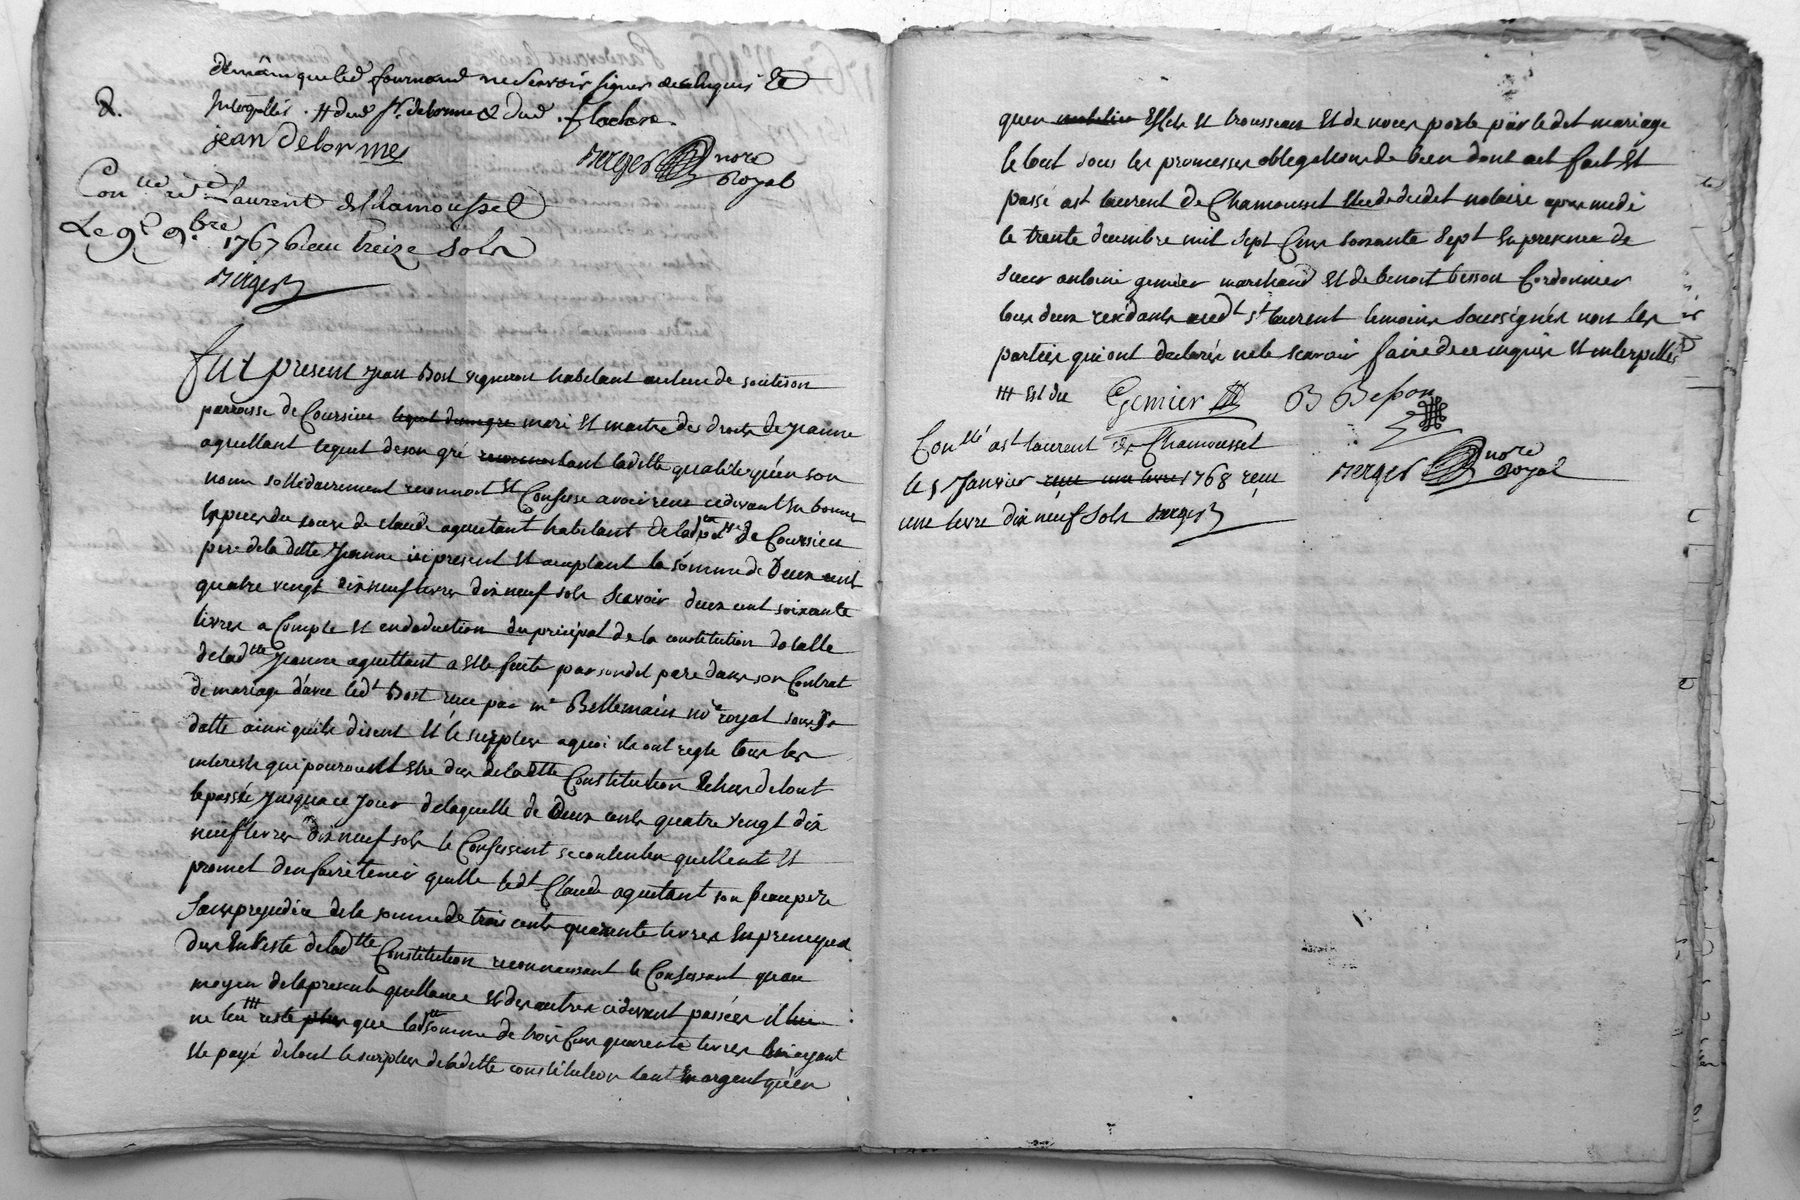 et non que led. fournand ne scavoir signer de ce Enquis Et
Interpellés . # dud sr. delorme & dud . flachere
jean Delorme
Berger nore Royal
Con.llé a St Laurent de Chamousset
Le 9e 9.bre 1767 Reçu treize Sols
Berger
fut present Jean Bost vigneron habitant au lieu de
parroisse de Coursieu mari Et maitre des droits de Jeanne
aguettant lequel de son gré tant laditte qualité qu'en son
nom sollidairement reconnoit Et Confesse avoir reçu cidevant En bonnes
Especes du sieur de claude aguettant habitant de lad. psse de Coursieu
pere de la ditte Jeanne ici present Et aceptant la somme de Deux cent
quatre vingt dix neuf livres dix neuf sols Scavoir deux cent soixante
livres a Compte Et en deduction du principal de la constitution dotalle
de lad.tte Jeanne aguettant a Elle faite par sondit pere dans son Contrat
de mariage d'avec led.t Bost reçu par me Bellemain nre royal sous sa
datte ainsi qu'ils disent Et le surplus a quoi ils ont reglé tous les
interests qui pouroient Etre dus de lad.tte Constitution Echus de tout
le passé Jusqu'a ce Jour de laquelle de Deux cents quatre vingt dix
neuf livres dix neuf sols le Confessent se contenter quittent Et
promet d'en faire tenir quitte led.t Claude aguettant son beaupere
Sans prejudice de la somme de trois cents quarente livres En principal
dus En Reste de lad.tte Constitution reconnoissant le Confessant qu'au
moyen de la presente quittance Et des autres cidevant passées il
ne reste que lad.tte somme de trois Cens quarente livres ayant
Ete payé de tout le surplus de laditte constitution tant En argent qu'en
qu'en Effets Et trousseau Et de noces porté par ledit mariage
le tout sous les promesses obligations de bien dont act fait Et
passé a st laurent de Chamousset Etude dudit notaire apres midi
le trente decembre mil Sept Cens soixante Sept En presence de
sieur antoine gemier marchand Et de benoit besson Cordonnier
tous deux residants aud.t st laurent temoins soussignés non les
parties qui ont declarés ne le scavoir faire de ce enquis Et interpellés
### Est du Gemier B Besson
Con.llé a st laurent de Chamousset
Berger nore Royal
le 5 Janvier 1768 reçu
une livre dix neuf Sols Berger